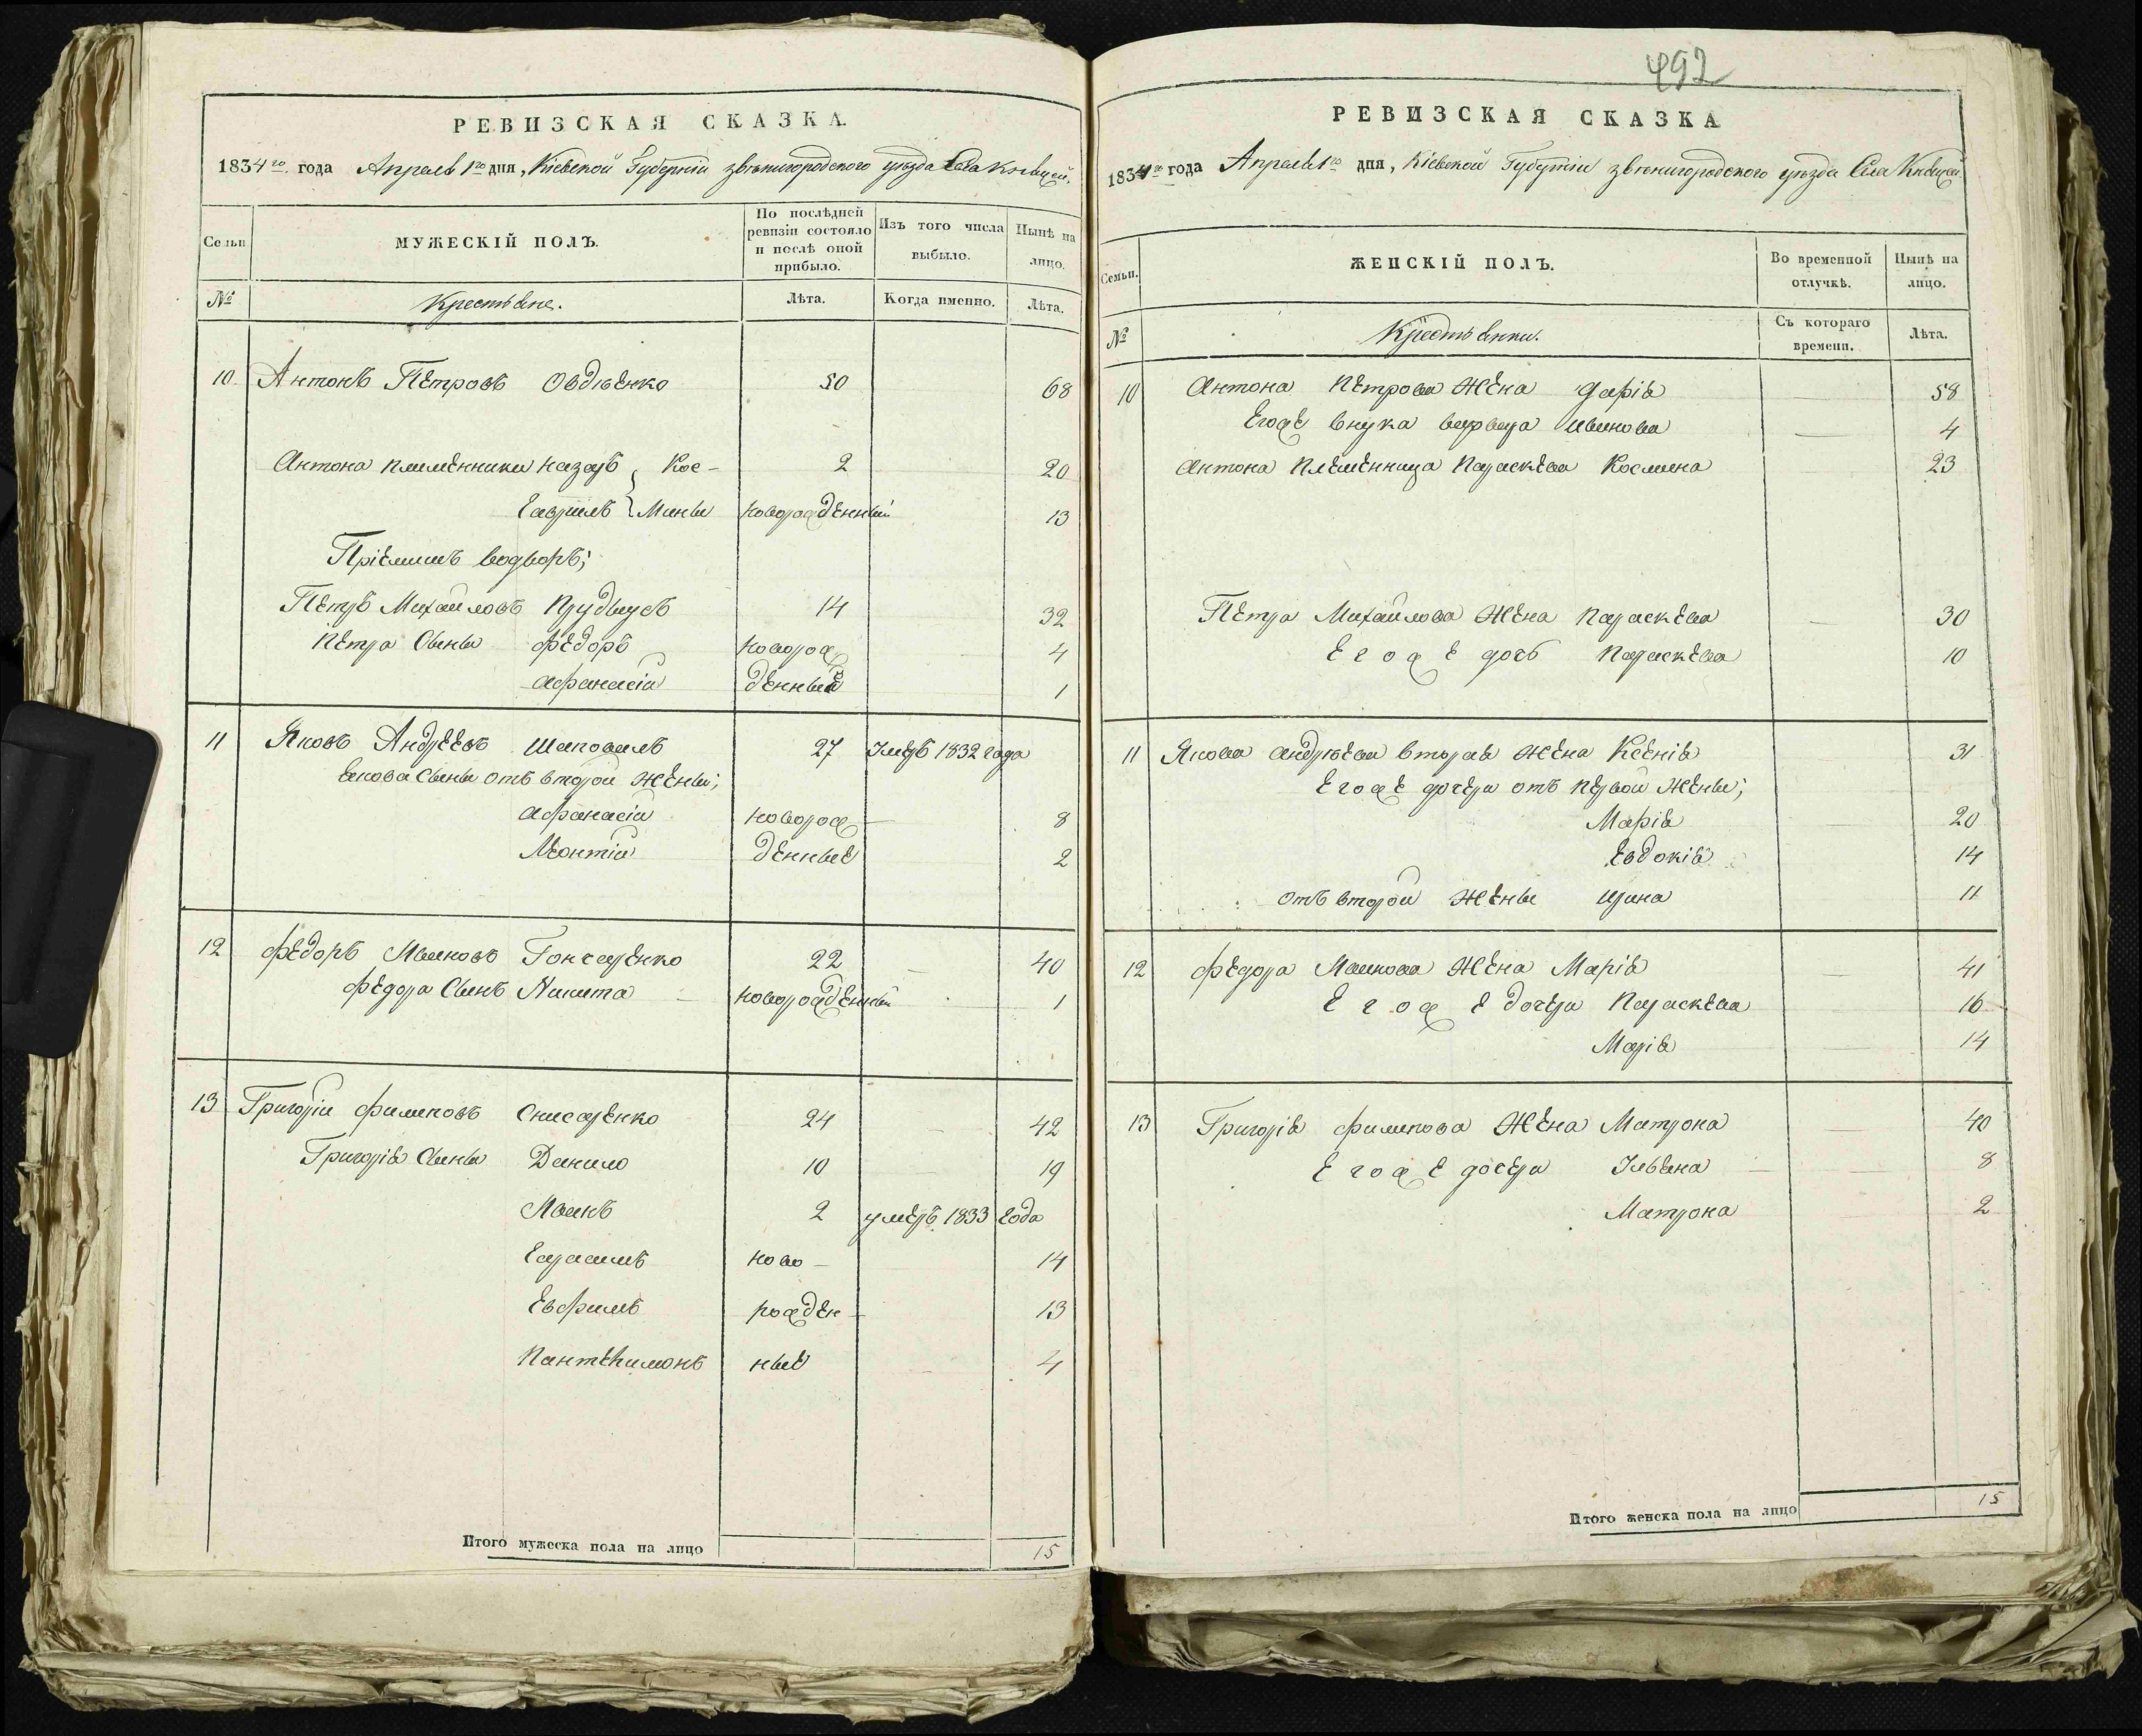 РЕВИЗСКАЯ СКАЗКА.
1834го года Апреля 1го дня, Кіевской Губерніи звѣнигородского уѣзда Села Княжей.
Семьи
МУЖЕСКІЙ ПОЛЪ.
По послѣдней ревизіи состояло и послѣ оной прибыло.
Изъ того числа выбыло.
Нынѣ на лицо.
№
Крестьяне.
Лѣта.
Когда именно.
Лѣта.
10 Антонъ Петровъ Овдіенко 50 68
Антона племенники Назаръ Кос- 2 20
Гаврилъ Мины новорожденный 13
Пріемишъ водворѣ;
Петръ Михайловъ 14 32
Петра Сыны Федоръ новорож 4
Афанасій денные 1
11 Яковъ Андреевъ Шаповалъ 27 Умеръ 1832 года
Якова Сыны отъ второй жены;
Афанасій новорож 8
Леонтій денные 2
12 Федоръ Ивановъ Гончаренко 22 40
Федора Сынъ Никита новорожденный 1
13 Григорій Филиповъ Снисаренко 24 42
Григорія Сыны Данило 10 19
Иванъ 2 умеръ 1833 года
Гарасимъ ново- 14
Евфимъ рожден- 13
Пантелимонъ ные 4
Итого мужеска пола на лицо 15
492
РЕВИЗСКАЯ СКАЗКА
1834го года Апреля 1го дня, Кіевской Губерніи звѣнигородского уѣзда Села Княжей
Семьи.
ЖЕНСКІЙ ПОЛЪ.
Во временной отлучкѣ.
Нынѣ на лицо.
№
Крестьянки.
Съ котораго времени.
Лѣта.
10 Антона Петрова жена Дарія 58
Егоже внука варвара Иванова 4
Антона Племенница Параскева Космина 23
Петра Михайлова жена Параскева 30
Егоже дочь Параскева 10
11 Якова андрѣева вторая жена Ксенія 31
Егоже дочери отъ первой жены;
Марія 20
Евдокія 14
отъ второй жены Ирина 11
12 Федора Иванова жена Марія 41
Егоже дочери Параскева 16
Марія 14
13 Григорія филипова жена Матрона 40
Егоже дочери Ульяна 8
Матрона 2
Итого женска пола на лицо 15